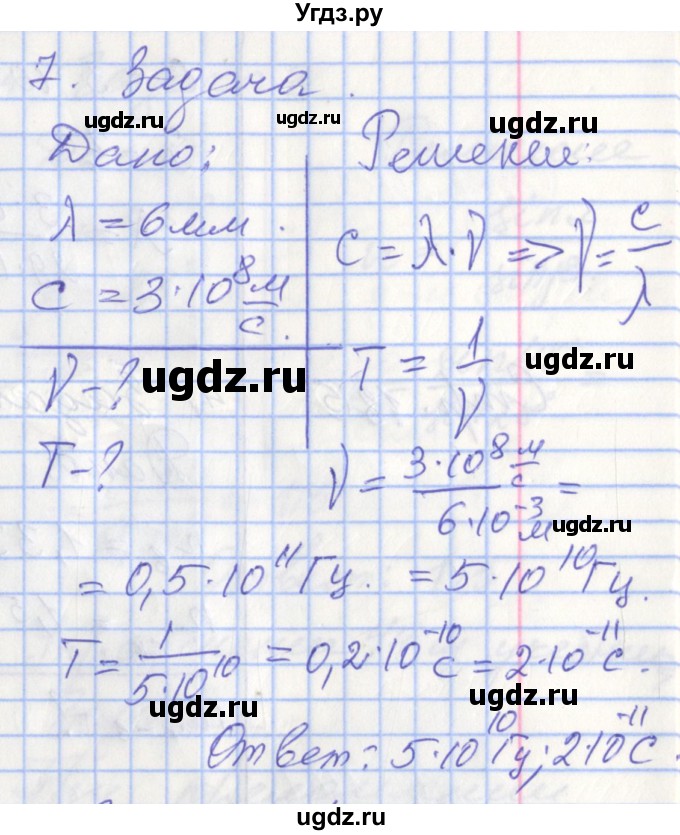 Угдз.ру
7. Задача.
ugdz.ru ugdz.ru ugdz.ru
Дано: Решение:
λ = 6мм.
c = λ·ν => ν = c/λ
c = 3·10⁸ м/с.
ν - ? ugdz.ru T = 1/ν ugdz.ru
T - ? ν = 3·10⁸ м/с / 6·10⁻³ м =
ugdz.ru
= 0,5·10¹¹ Гц. = 5·10¹⁰ Гц.
T = 1/5·10¹⁰ = 0,2·10⁻¹⁰ с = 2·10⁻¹¹ с.
ugdz.ru ugdz.ru
Ответ: 5·10¹⁰ Гц; 2·10⁻¹¹ с.
ugdz.ru
ugdz.ru